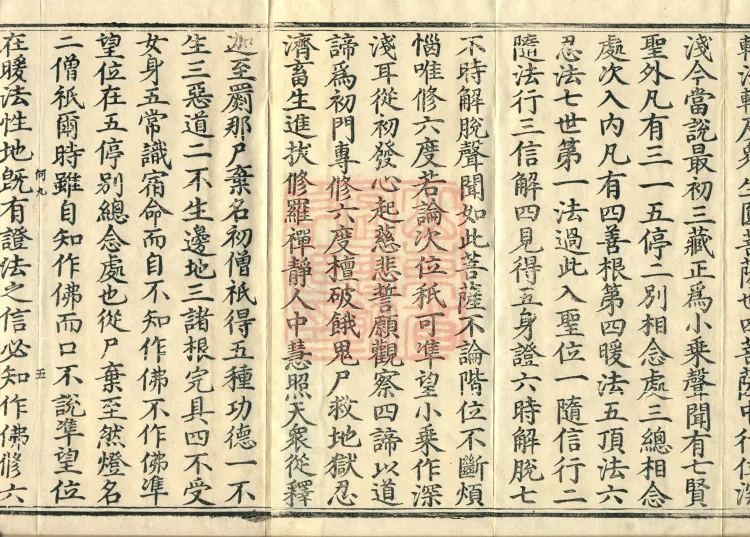 淺今當說最初三藏正爲小乘聲聞有七賢
聖外凡有三一五停二別相念處三總相念
處次入內凡有四善根第四暖法五頂法六
忍法七世第一法過此入聖位一隨信行二
隨法行三信解四見得五身證六時解脫七
不時解脫聲聞如此菩薩不論階位不斷煩
惱唯修六度若論次位秖可準望小乘作深
淺耳從初發心起慈悲誓願觀察四諦以道
諦爲初門專修六度檀破餓鬼尸救地獄忍
濟畜生進拔修羅禪靜人中慧照天衆從釋
迦至罽那尸棄名初僧祇得五種功德一不
生三惡道二不生邊地三諸根完具四不受
女身五常識宿命而自不知作佛不作佛準
望位在五停別總念處也從尸棄至然燈名
二僧祇爾時雖自知作佛而口不說準望位
何九
五
在暖法性地既有證法之信必知作佛修六